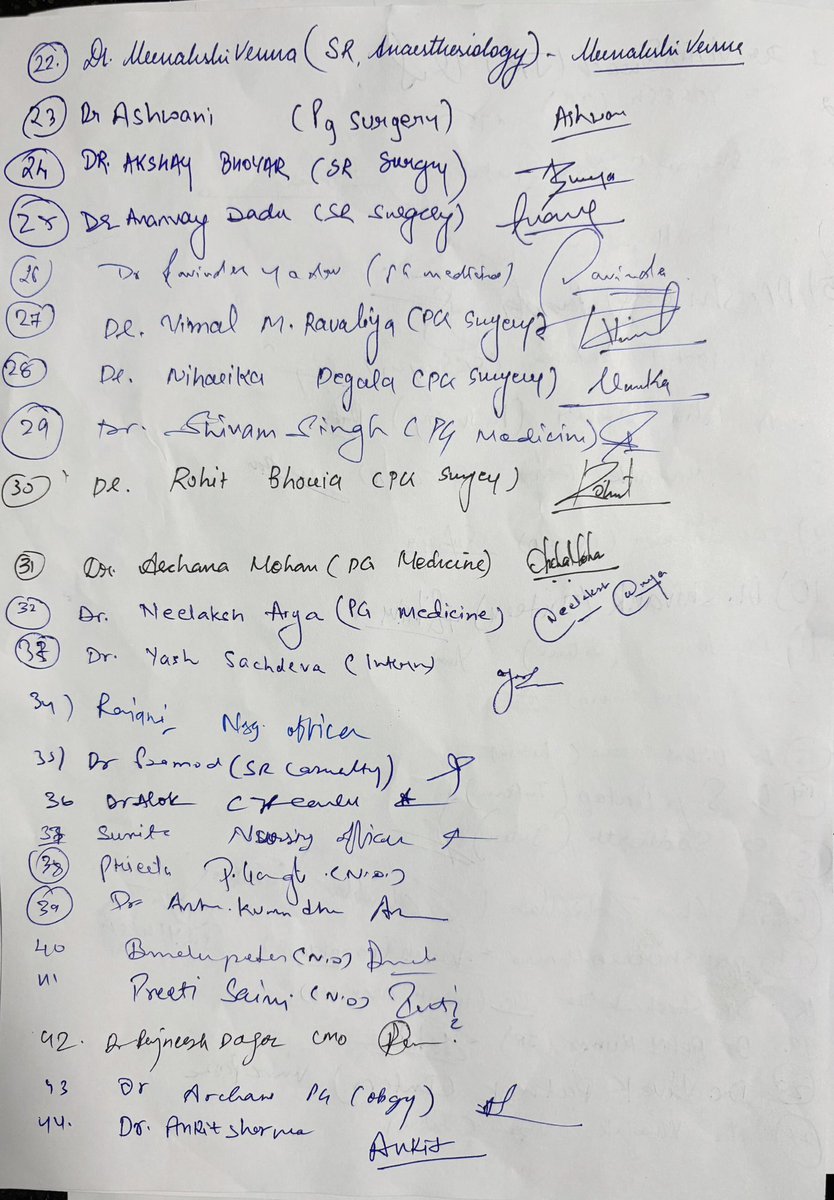 22. Dr. Meenakshi Verma (SR, Anaesthesiology) - Meenakshi Verma
23 Dr Ashwani (Pg Surgery) Ashwani
24 DR. AKSHAY BHOYAR (SR Surgery)
25 Dr Ananvay Dadu (SR Surgery)
26 Dr Ravinder Yadav (PG medicine) Ravinder
27 Dr. Vimal M. Ravaliya (PG Surgery)
28 Dr. Niharika Degala (PG Surgery)
29 Dr. Shivam Singh (PG Medicine)
30 Dr. Rohit Bhouia (PG Surgery) Rohit
31 Dr. Archana Mohan (PG Medicine)
32 Dr. Neelaksh Arya (PG medicine) Neelaksh Arya
33 Dr. Yash Sachdeva (Intern)
34) Rajani Nsg. officer
35) Dr Pramod (SR Casualty)
36 Dr Alok
37 Sunita Nursing officer
38 (N.O.)
39 Dr
40 (N.O)
41 Preeti Saini (N.O) Preeti
42. Dr Rajneesh Dagar CMO
43 Dr Archana PG (obgy)
44. Dr. Ankit sharma
Ankit